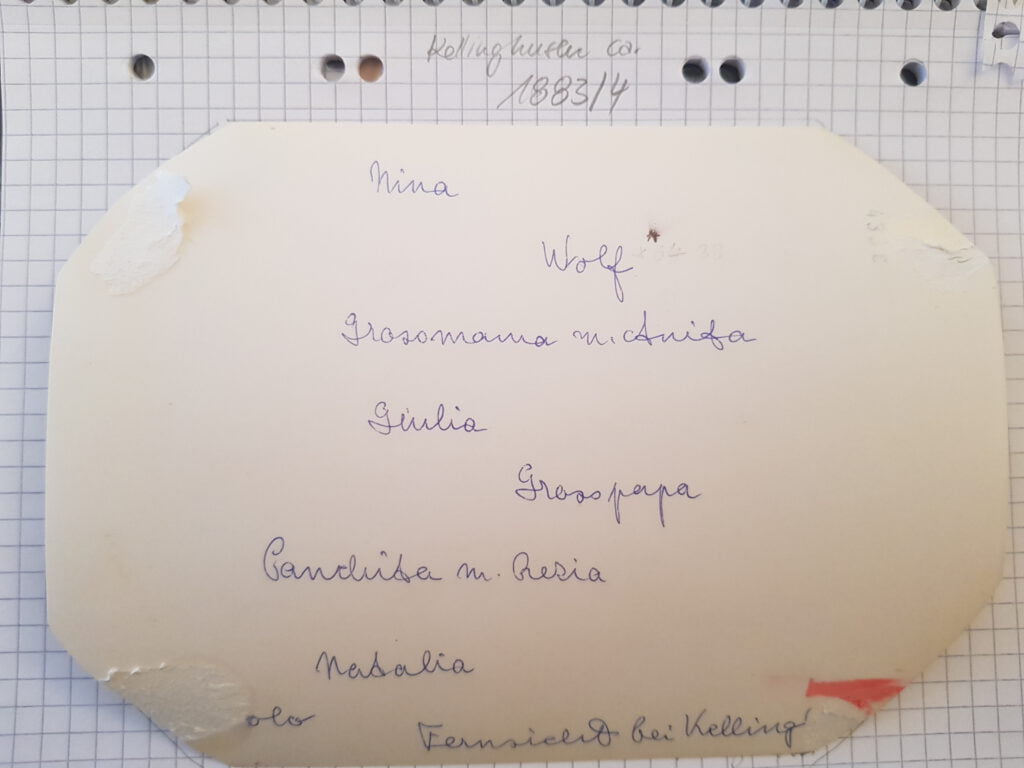 Kellinghusen ca.
1883/4
Nina
Wolf
Grossmama m. Anita
Giulia
Grosspapa
Panchita m. Resia
Natalia
olo
Fernsicht bei Kelling